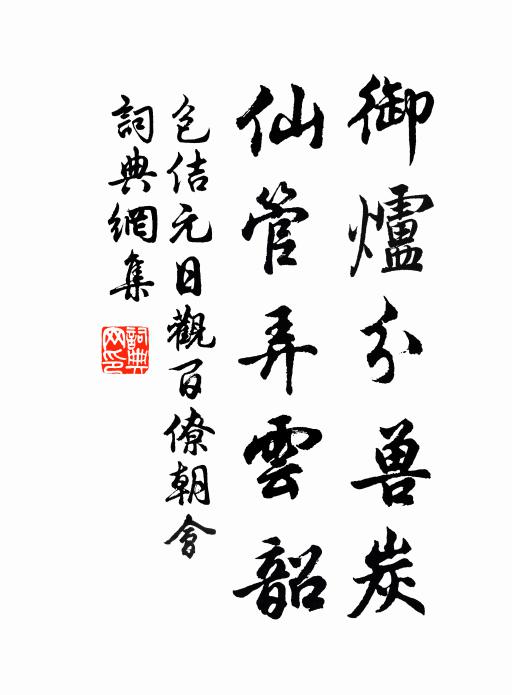 御爐分兽炭
仙管弄雲韶
包佶元日觀百僚朝會
詞典網集
詞典网印